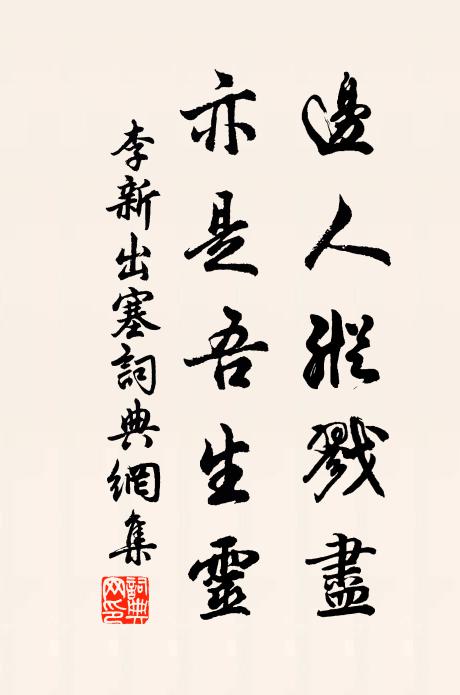 邊人縱戮盡
亦是吾生靈
李新出塞詞典網集
詞典網印